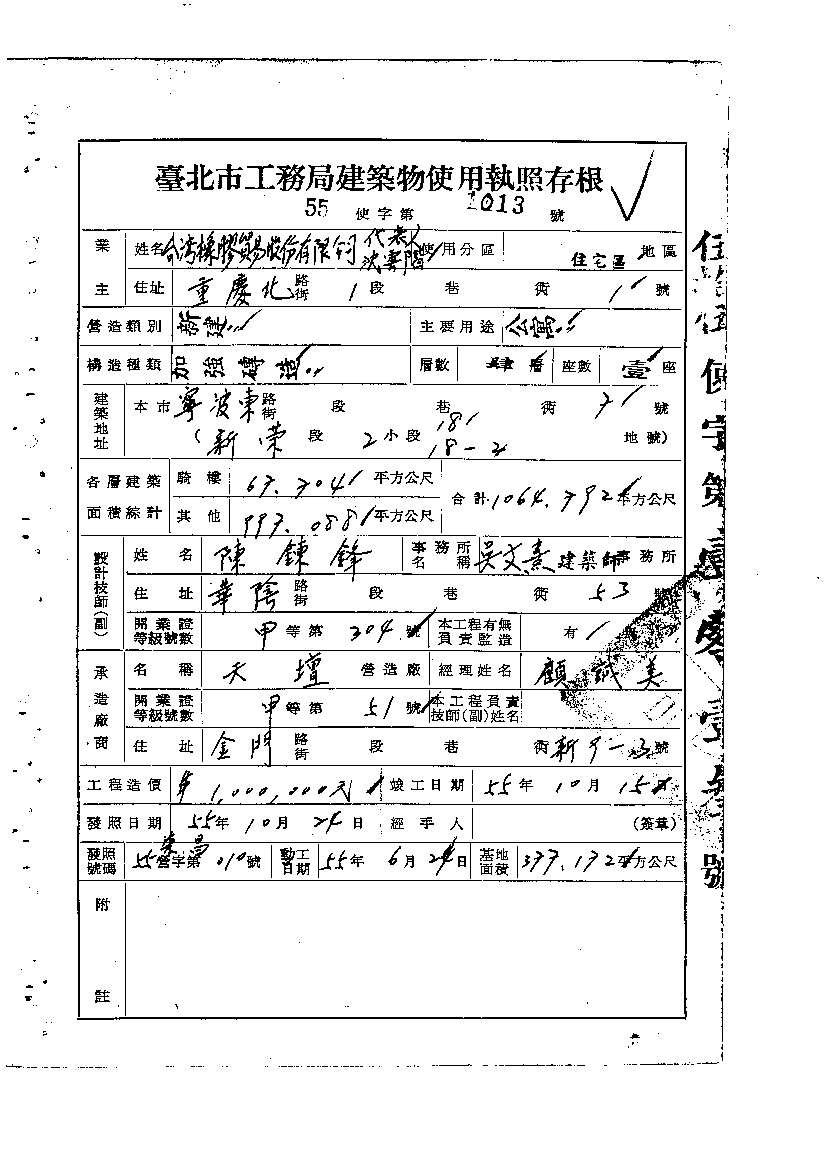 臺北市工務局建築物使用執照存根
55 使字第 1013 號
業主 姓名 台湾橡膠貿易股份有限公司 代表人 沈雲階 使用分區 住宅區 地區
住址 重慶北 路街 1 段 巷 衖 1 號
營造類別 新建 主要用途 公寓
構造種類 加強磚造 層數 肆層 座數 壹座
建築地址 本市 寧波東 路街 段 巷 衖 號
(新荣段 2 小段 18-2 地號)
各層建築面積綜計 騎樓 平方公尺 合計 平方公尺
其他 平方公尺
設計技師(副) 姓名 陳鍊鋒 事務所名稱 吳文熹建築師事務所
住址 華陰 路街 段 巷 衖 53 號
開業證等級號數 甲等第 304 號 本工程有無負責監造 有
承造廠商 名稱 天壇 營造廠 經理姓名 顧誠美
開業證等級號數 甲等第 51 號 本工程負責技師(副)姓名
住址 金門 路街 段 巷 衖 號
工程造價 $1,000,000元 竣工日期 55年 10月 15日
發照日期 55年 10月 24日 經手人 (簽章)
發照號碼 55營字第 010 號 動工日期 55年 6月 24日 基地面積 平方公尺
附註
使字第壹零壹參號